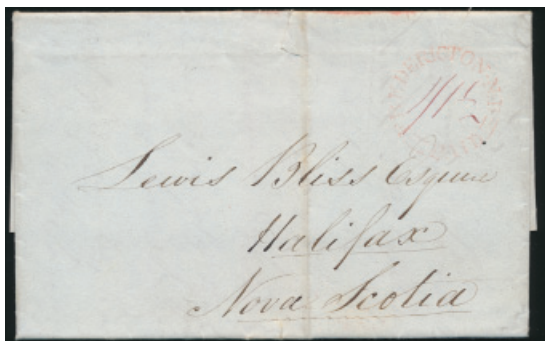 Lewis Bliss Esquire
Halifax
Nova Scotia